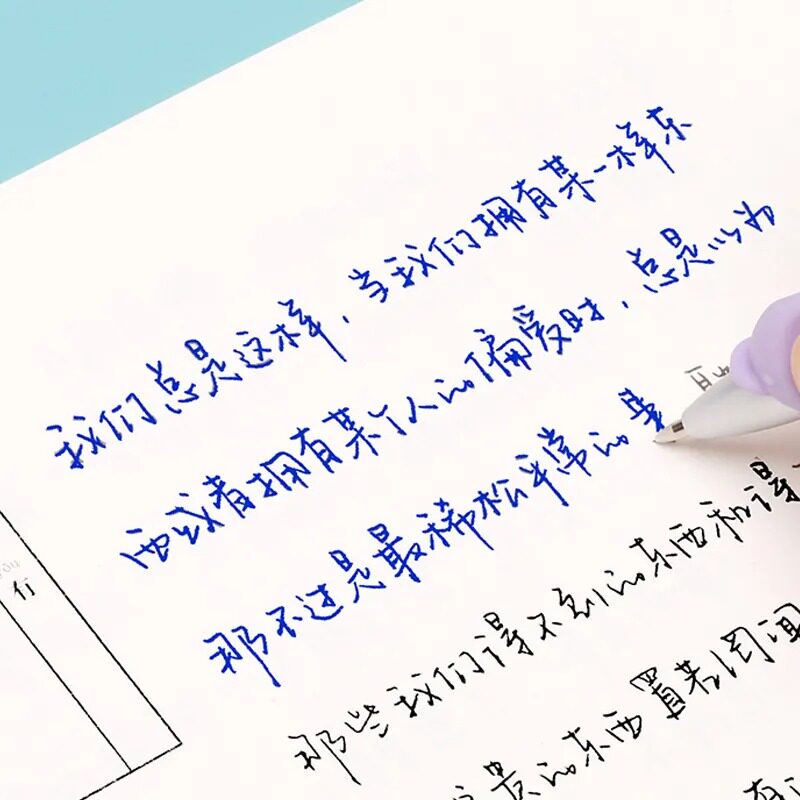 我们总是这样，当我们拥有某一样东
西或者拥有某个人的偏爱时，总是以为
那不过是最稀松平常的
那些我们得不到的东西和得
贵的东西置若罔闻
行